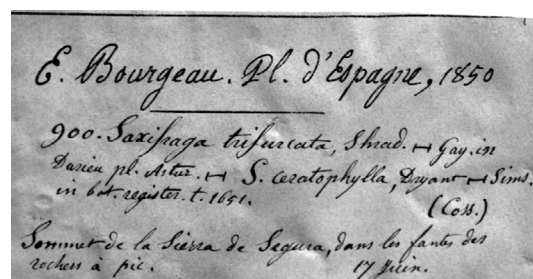 E. Bourgeau. Pl. d'Espagne, 1850
900. Saxifraga trifurcata, Shrad. ⊢⊣ Gay. in
Durieu pl. Astur. ⊢⊣ S. ceratophylla, Dryant ⊢⊣ Sims.
in bot. register. t. 1651.
(Coss.)
Sommet de la Sierra de Segura, dans les fantes des
rochers à pic. 17 Juin.